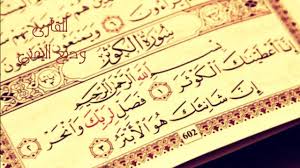 القارئ
سورة الكوثر
بسم الله الرحمن الرحيم
إنا أعطينك الكوثر ١ فصل لربك وانحر ٢
إن شانئك هو الأبتر ٣
602